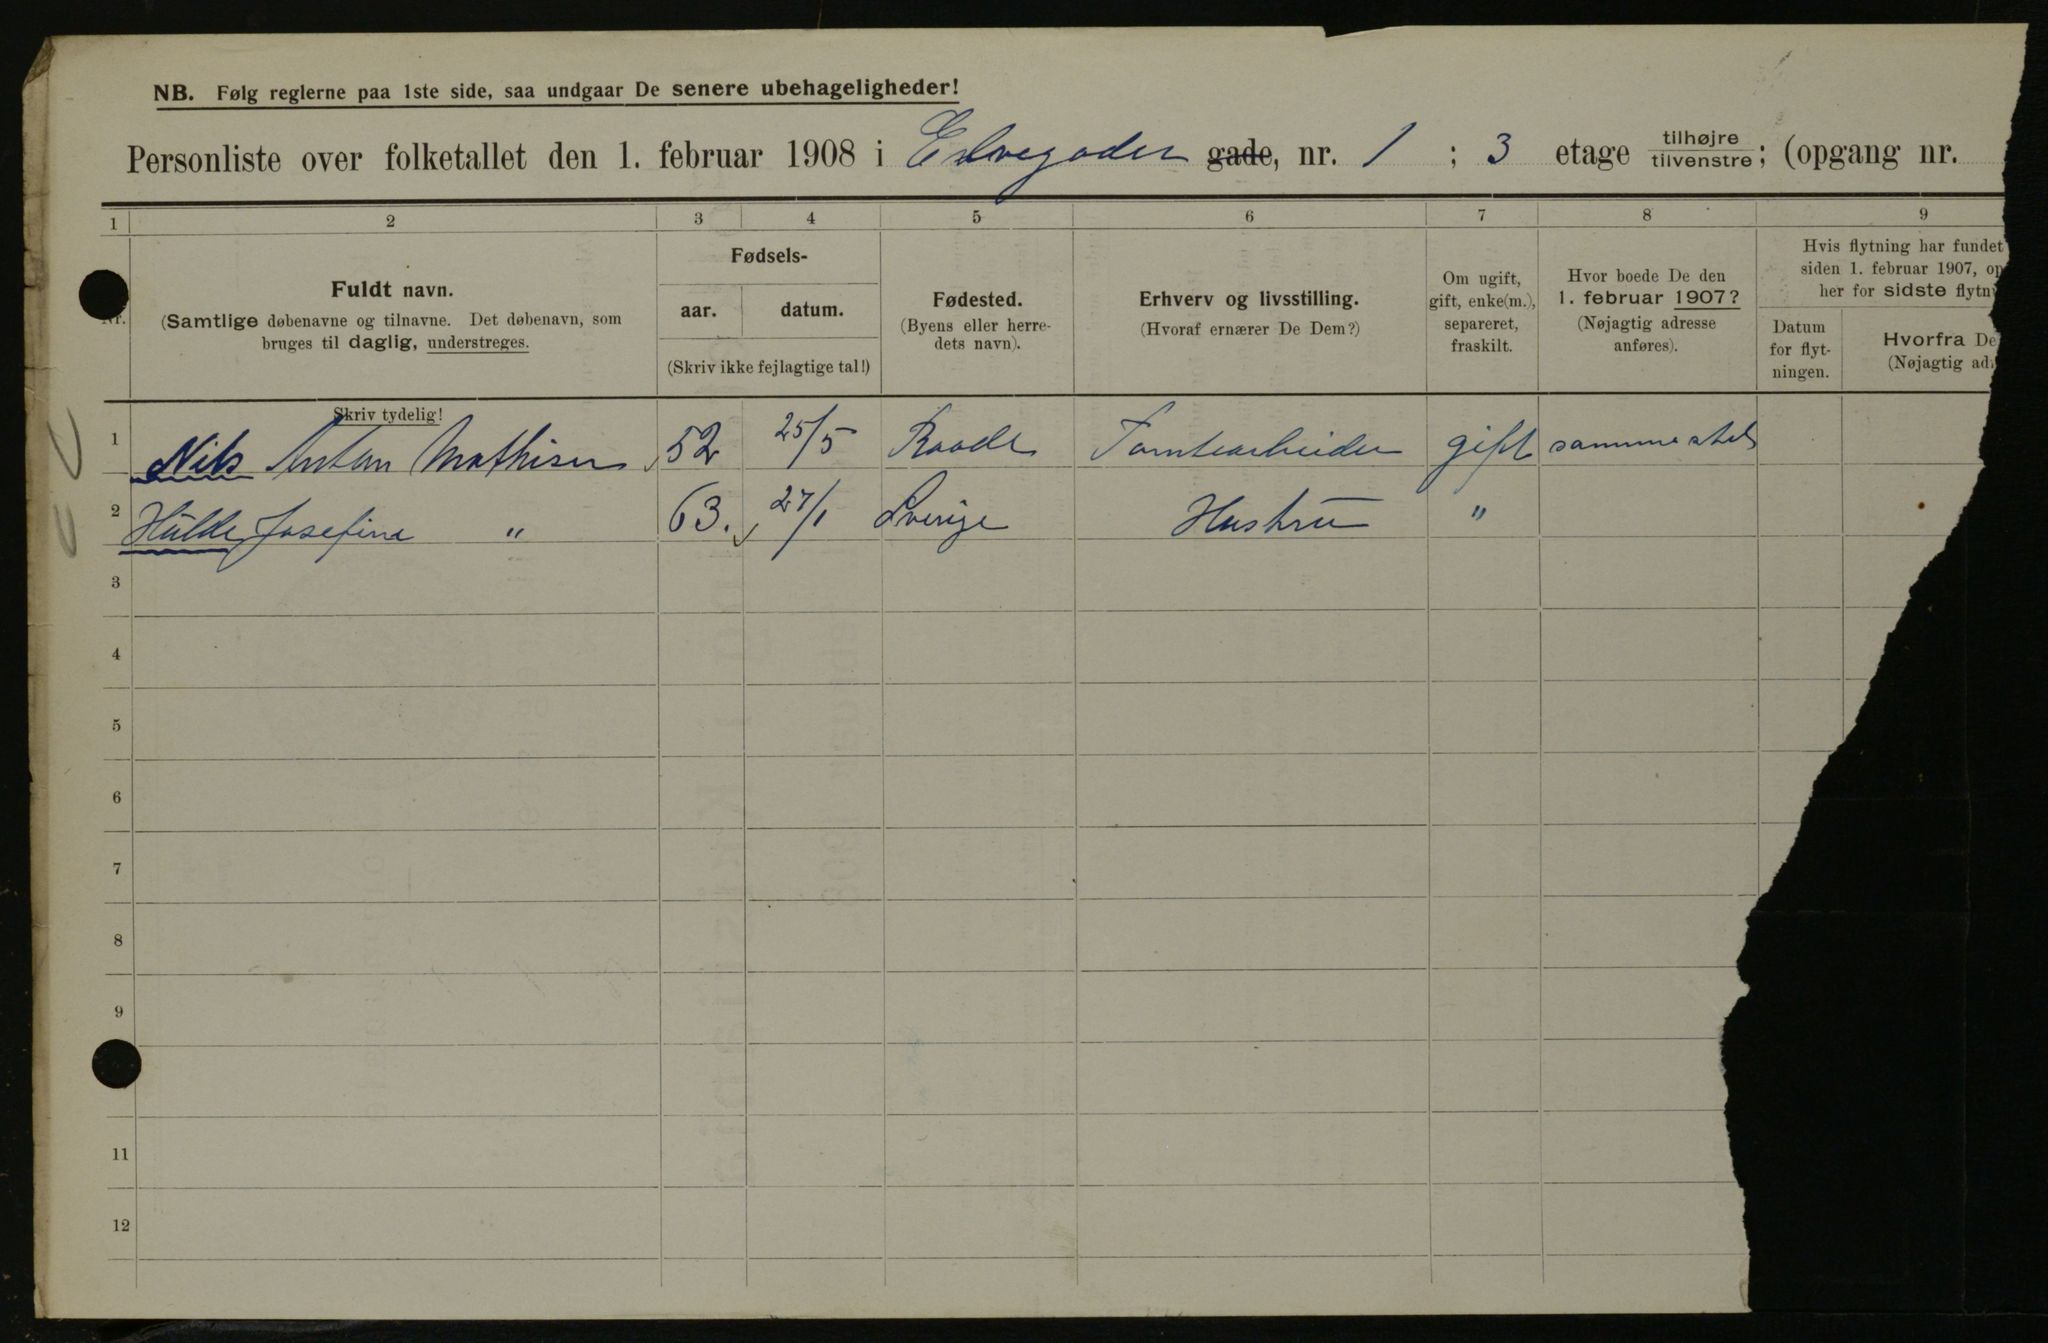 NB. Følg reglerne paa 1ste side, saa undgaar De senere ubehageligheder!
Personliste over folketallet den 1. februar 1908 i Elvegaden gade, nr. 1 ; 3 etage tilhøjre tilvenstre; (opgang nr.
1 2 3 4 5 6 7 8 9
Fuldt navn.
(Samtlige døbenavne og tilnavne. Det døbenavn, som
bruges til daglig, understreges.
Fødsels-
aar. datum.
(Skriv ikke fejlagtige tal!)
Fødested.
(Byens eller herre-
dets navn).
Erhverv og livsstilling.
(Hvoraf ernærer De Dem?)
Om ugift,
gift, enke(m.),
separeret,
fraskilt.
Hvor boede De den
1. februar 1907?
(Nøjagtig adresse
anføres).
Hvis flytning har fundet
siden 1. februar 1907, op
her for sidste flytn
Datum
for flyt-
ningen.
Hvorfra De
(Nøjagtig ad
Skriv tydelig!
1 Nils Anton Mathisen 52 25/5 Raade Tomtearbeider gift samme sted
2 Hulda Josefine " 63. 27/1 Sverige Hustru "
3
4
5
6
7
8
9
11
12